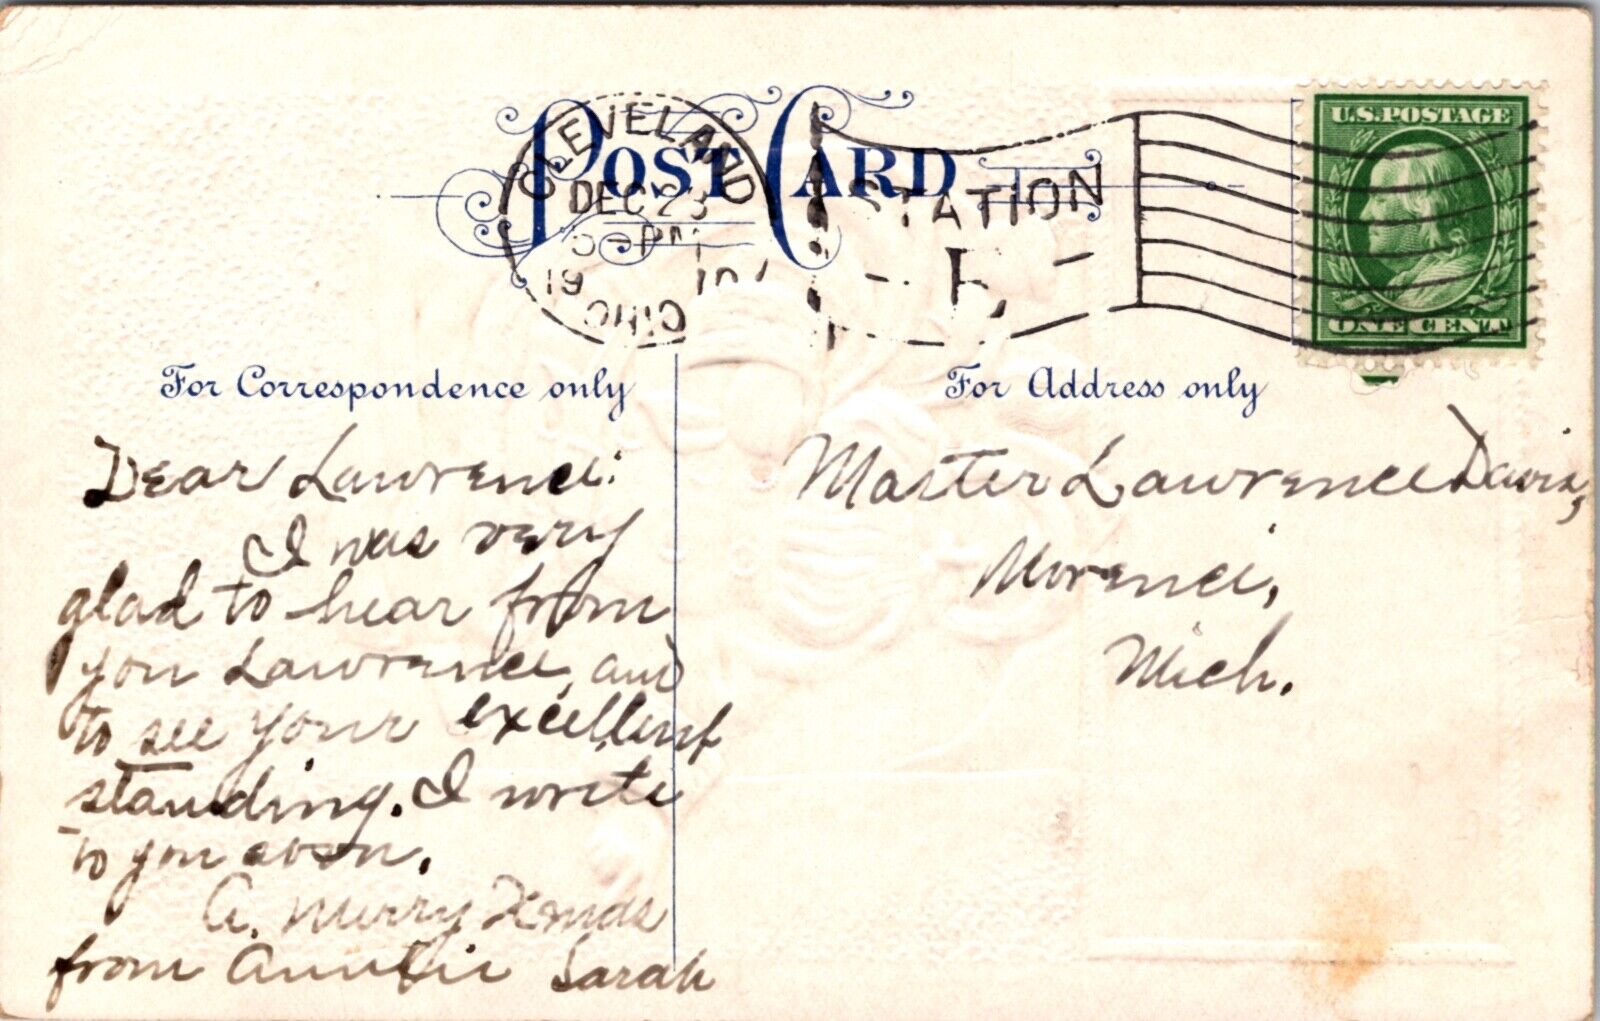 POST CARD
CLEVELAND
DEC 23
PM
19 10
OHIO
STATION
U.S. POSTAGE
ONE CENT
For Correspondence only
For Address only
Dear Lawrence:
I was very
glad to hear from
you Lawrence, and
to see your excellent
standing. I write
to you soon.
A. Merry
from Auntie Sarah
Master Lawrence Davis,
Morenci,
Mich.